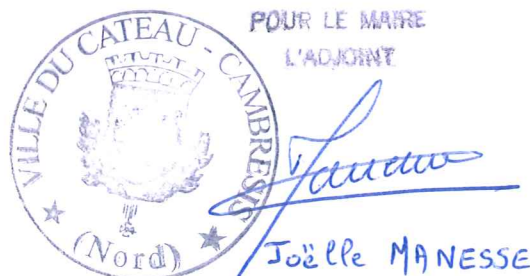 VILLE DU CATEAU - CAMBRESIS
(Nord)
POUR LE MAIRE
L'ADJOINT
Joëlle MANESSE